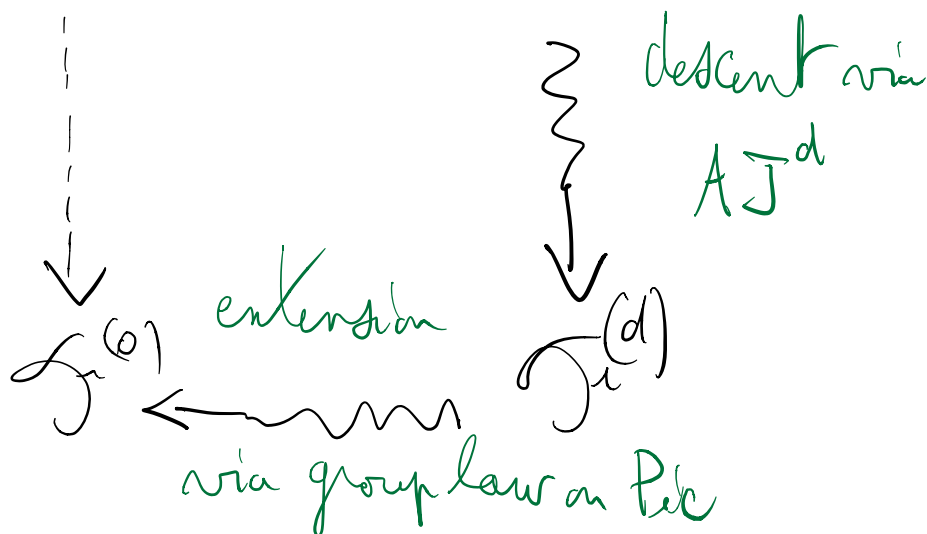 descent via
AJ^d
extension
via group law on Pic